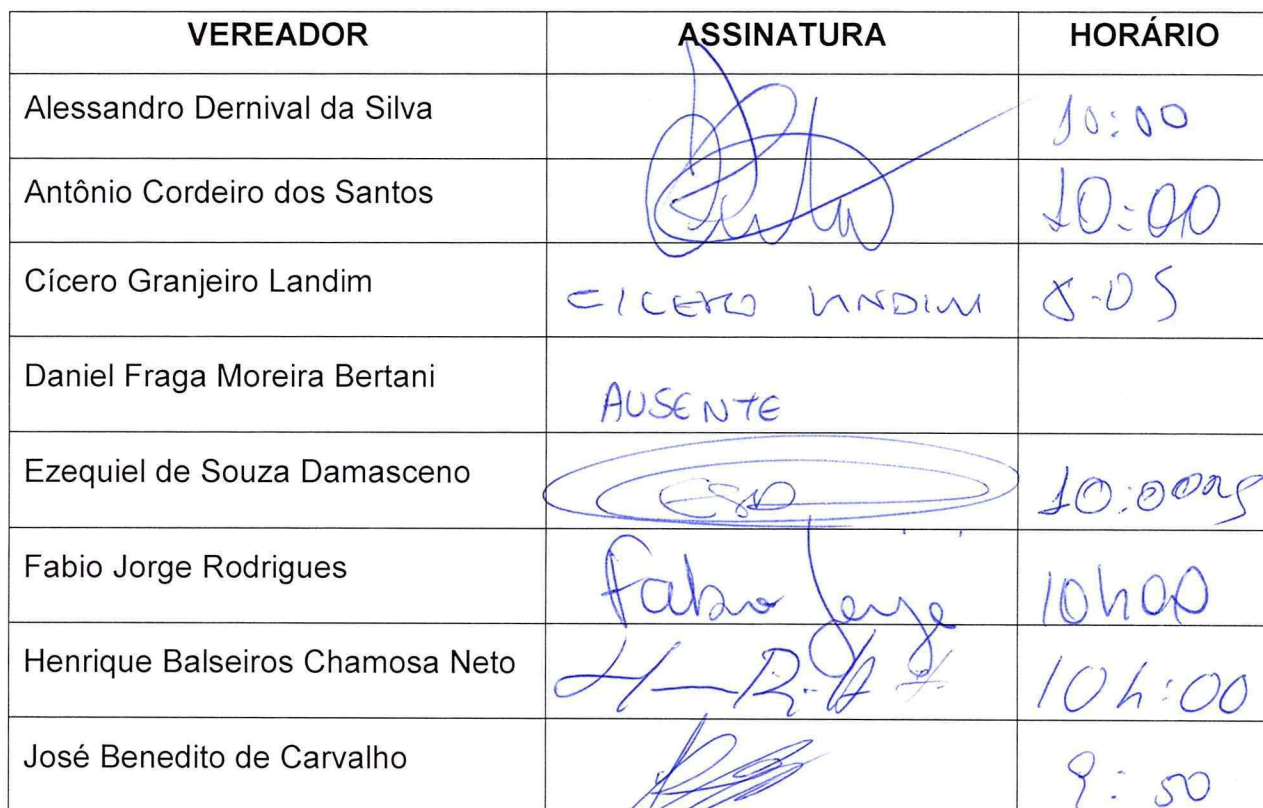 VEREADOR ASSINATURA HORÁRIO
Alessandro Dernival da Silva 10:00
Antônio Cordeiro dos Santos 10:00
Cícero Granjeiro Landim CICERO LANDIM 8:05
Daniel Fraga Moreira Bertani AUSENTE
Ezequiel de Souza Damasceno ESD 10:00
Fabio Jorge Rodrigues Fabio Jorge 10h00
Henrique Balseiros Chamosa Neto 10h:00
José Benedito de Carvalho 9:50